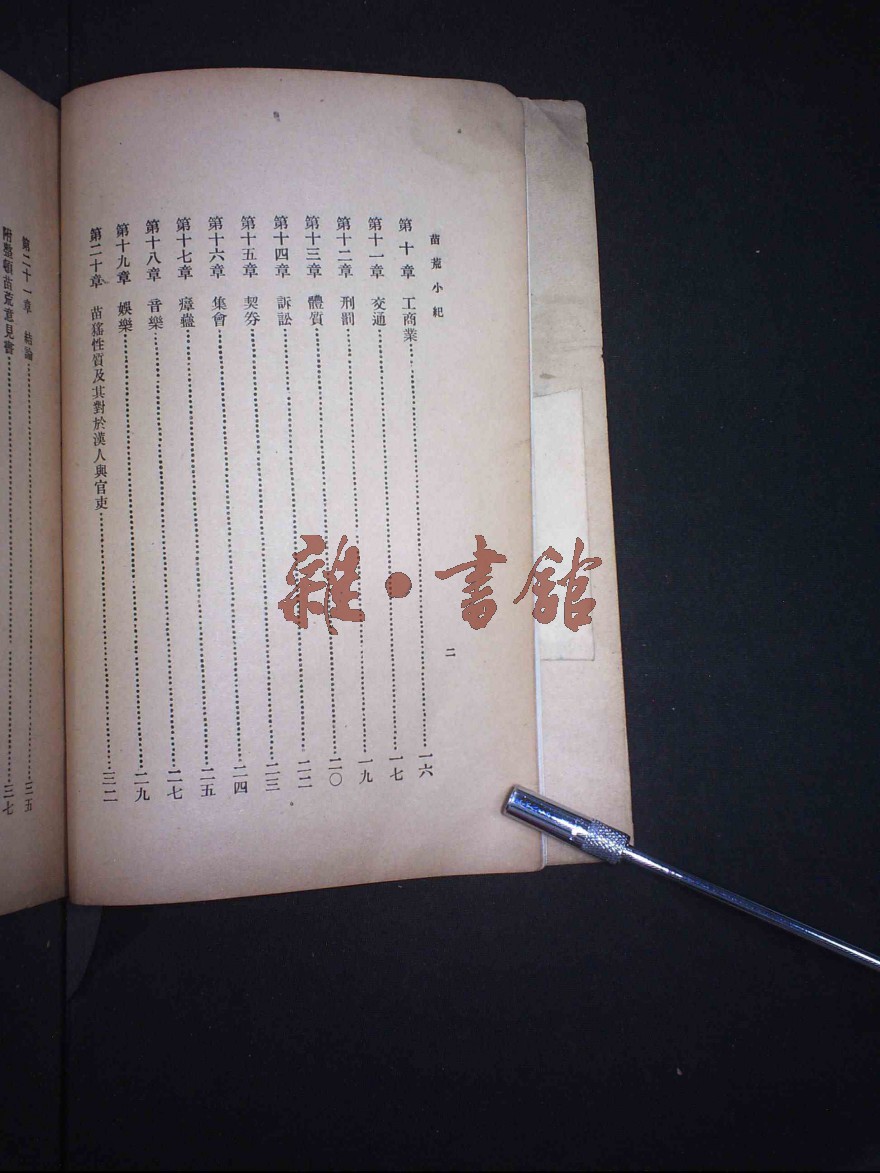 苗荒小紀
二
第十章 工商業 一六
第十一章 交通 一七
第十二章 刑罰 一九
第十三章 體質 二〇
第十四章 訴訟 二二
第十五章 契券 二三
第十六章 集會 二四
第十七章 瘴蠱 二五
第十八章 音樂 二七
第十九章 娛樂 二九
第二十章 苗猺性質及其對於漢人與官吏 三二
第二十一章 結論 三五
附整頓苗荒意見書 三七
雜·書館